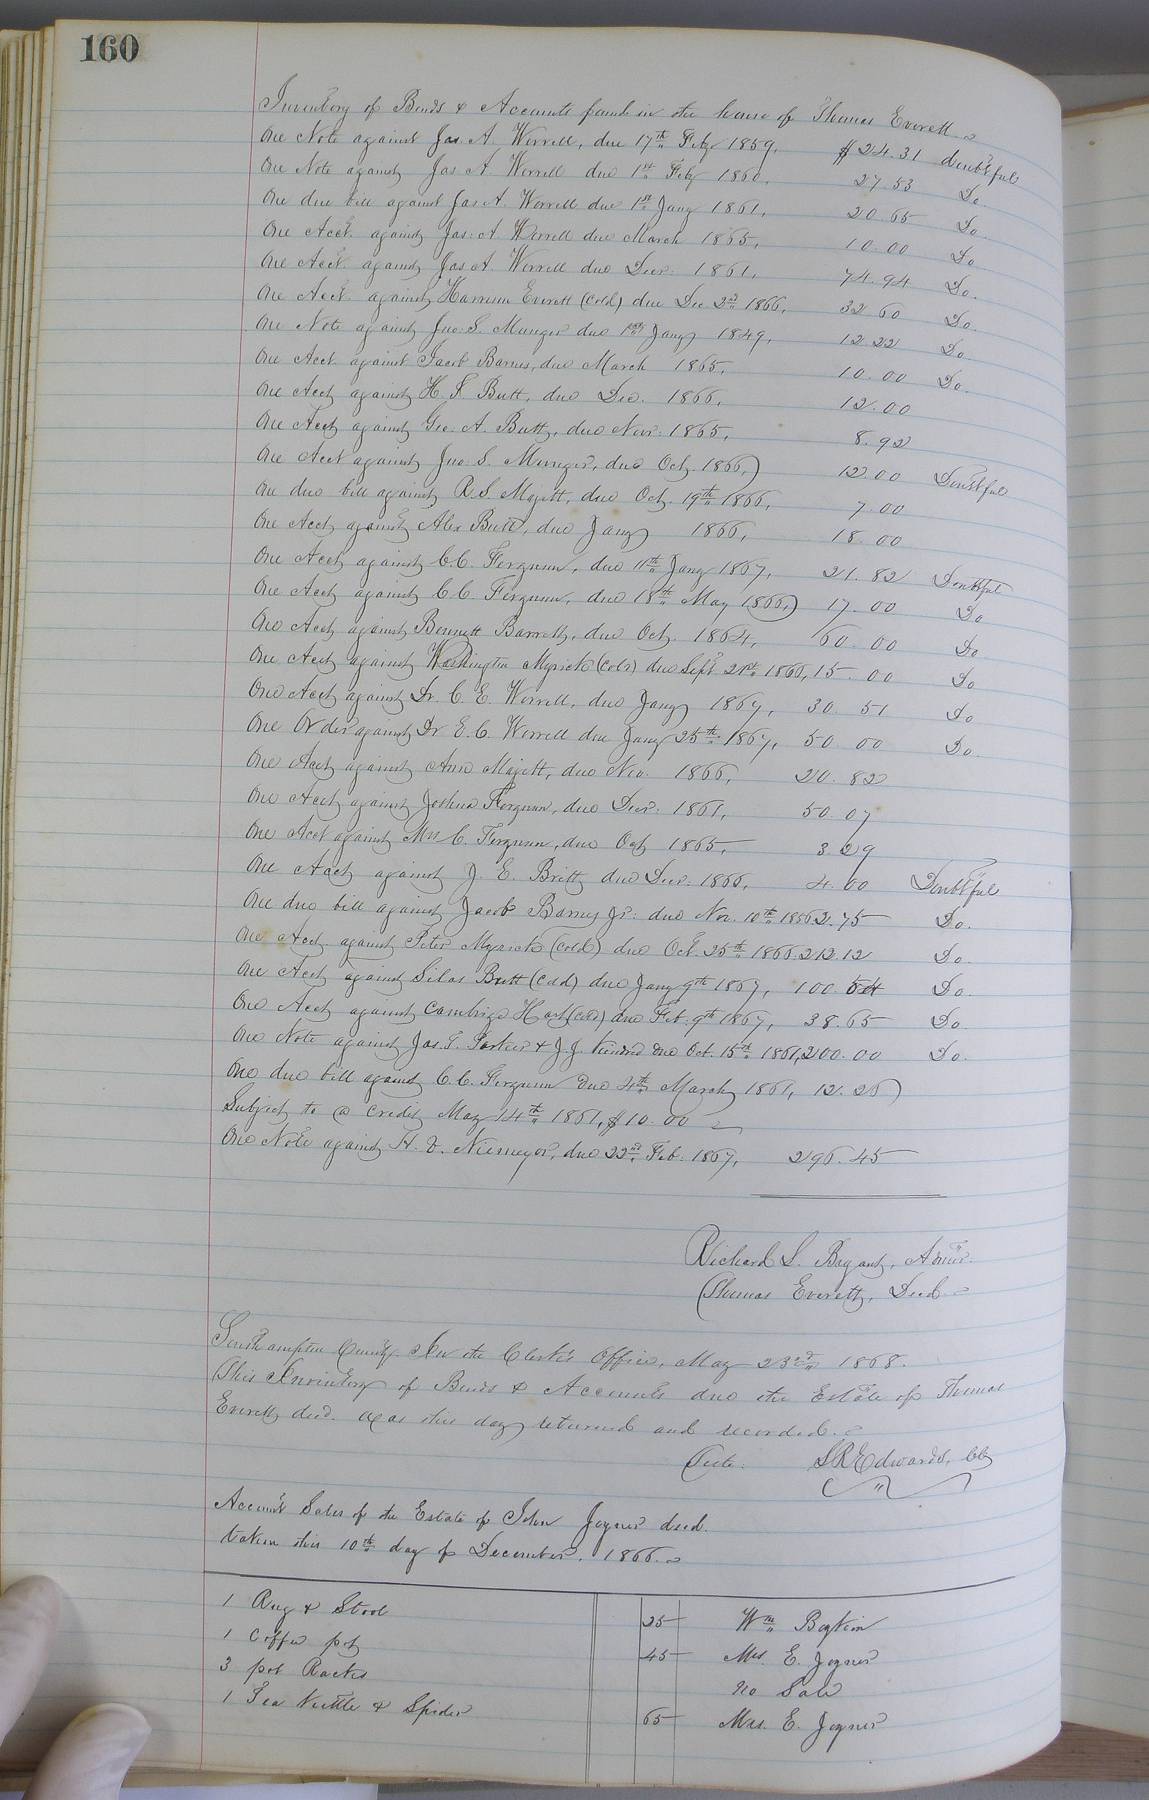 160
Inventory of Bonds & Accounts found in the house of Thomas Everett
One Note against Jas. A. Worrell, due 17th Feby 1859, $24.31 doubtful
One Note against Jas A. Worrell due 1st Feby 1860, 27.53 Do.
One due bill against Jas A. Worrell due 1st Jany 1861, 20.65 Do.
One Acct. against Jas. A Worrell due March 1865, 10.00 Do
One Acct. against Jas A. Worrell due Decr. 1861, 74.94 Do.
One Acct. against Harrison Everett (Cold) due Dec 2nd 1866, 32 60 Do.
One Note against Jno. S. Munger due Jany 1849, 12 22 Do.
One Acct. against Jacob Barnes, due March 1865, 10.00 Do.
One Acct against H. F. Butt, due Dec. 1866, 12.00
One Acct against Geo. A. Butt, due Novr. 1865, 8.92
One Acct against Jno. S. Munger, due Oct. 1866, 12.00 Doubtful
One due bill against R. S. Majett, due Oct. 19th 1866, 7.00
One Acct against Alex Butt, due Jany 1866, 18.00
One Acct against C. C. Ferguson, due 11th Jany 1867, 21.82 Doubtful
One Acct against C. C. Ferguson, due 18th May 1866, 17.00 Do
One Acct against Bennett Barrett, due Oct. 1864, 60.00 Do
One Acct against Washington Myrick (Cold) due Sept 21st 1866, 15.00 Do
One Acct against Dr. C. E. Worrell, due Jany 1867, 30.51 Do
One Order against Dr E. C. Worrell due Jany 25th 1867, 50 00 Do.
One Acct against Ann Majett, due Nov. 1866, 20.82
One Acct against Joshua Ferguson, due Decr. 1861, 50.07
One Acct against Mrs C. Ferguson, due Oct 1865, 3.29
One Acct against J. E. Britt due Decr. 1866, 4.00 Doubtful
One due bill against Jacob Barnes Jr. due Nov. 10th 1856 2.75 Do.
One Acct. against Peter Myrick (Cold) due Oct. 25th 1866. 212.12 Do.
One Acct against Silas Butt (Cold) due Jany 9th 1867, 100.54 Do.
One Acct against Cambrige Hart (Cold) due Feb. 9th 1867, 38.65 Do.
One Note against Jas. T. Parker & J. J. Kindred due Oct. 15th 1861, 200.00 Do.
One due bill against C. C. Ferguson due 4th March 1861, 12.25
Subject to a credit May 14th 1861, $10.00
One Note against H. V. Niemeyer, due 22nd Feb. 1867, 296.45
Richard S. Bryant, Admr.
Thomas Everett, Decd.
Southampton County. In the Clerk's Office, May 23rd 1868.
This Inventory of Bonds & Accounts due the Estate of Thomas
Everett decd. was this day returned and recorded.
Teste: S R Edwards, CC
Account Sales of the Estate of John Joyner decd.
taken this 10th day of December. 1866.
1 Rug & Stool 25 Wm Boykin
1 Coffee pot 45 Mrs. E. Joyner
3 pot Racks no Sale
1 Tea Kettle & Spider 65 Mrs. E. Joyner